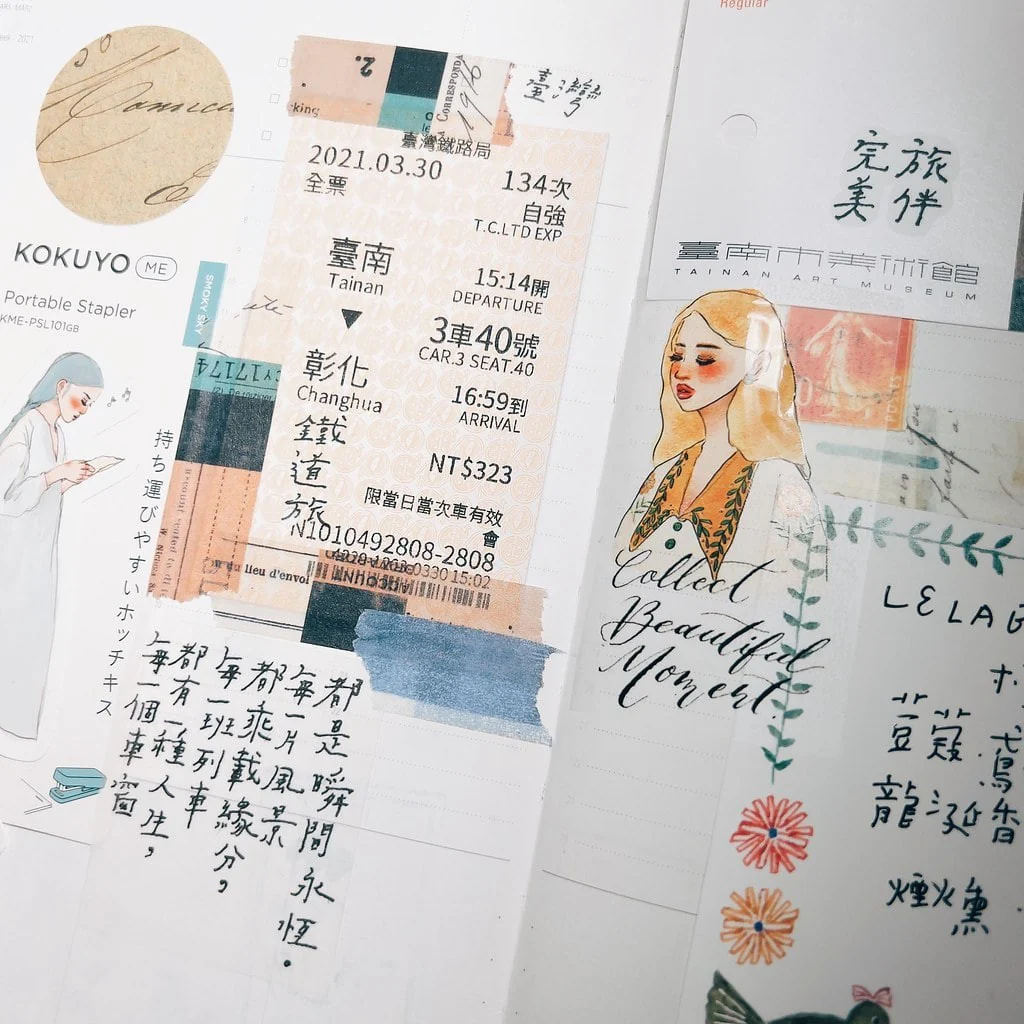 KOKUYO ME
Portable Stapler
KME-PSL101GB
持ち運びやすいホッチキス
2.
CORRESPONDA
1916
臺灣
臺灣鐵路局
2021.03.30
134次
全票
自強
T.C.LTD EXP
臺南
Tainan
15:14開
DEPARTURE
3車40號
CAR.3 SEAT.40
彰化
Changhua
16:59到
ARRIVAL
NT$323
限當日當次車有效
鐵道旅
N1010492808-2808
SMOKY SKY
du lieu d'envoi
ACCOUNT
每一個車窗
都有一種人生，
每一班列車
都乘載緣分，
每一片風景
都是瞬間永恆。
Regular
完美
旅伴
臺南市美術館
TAINAN ART MUSEUM
Collect
Beautiful
Moment.
LELAB
荳蔻
龍涎香
煙火薰